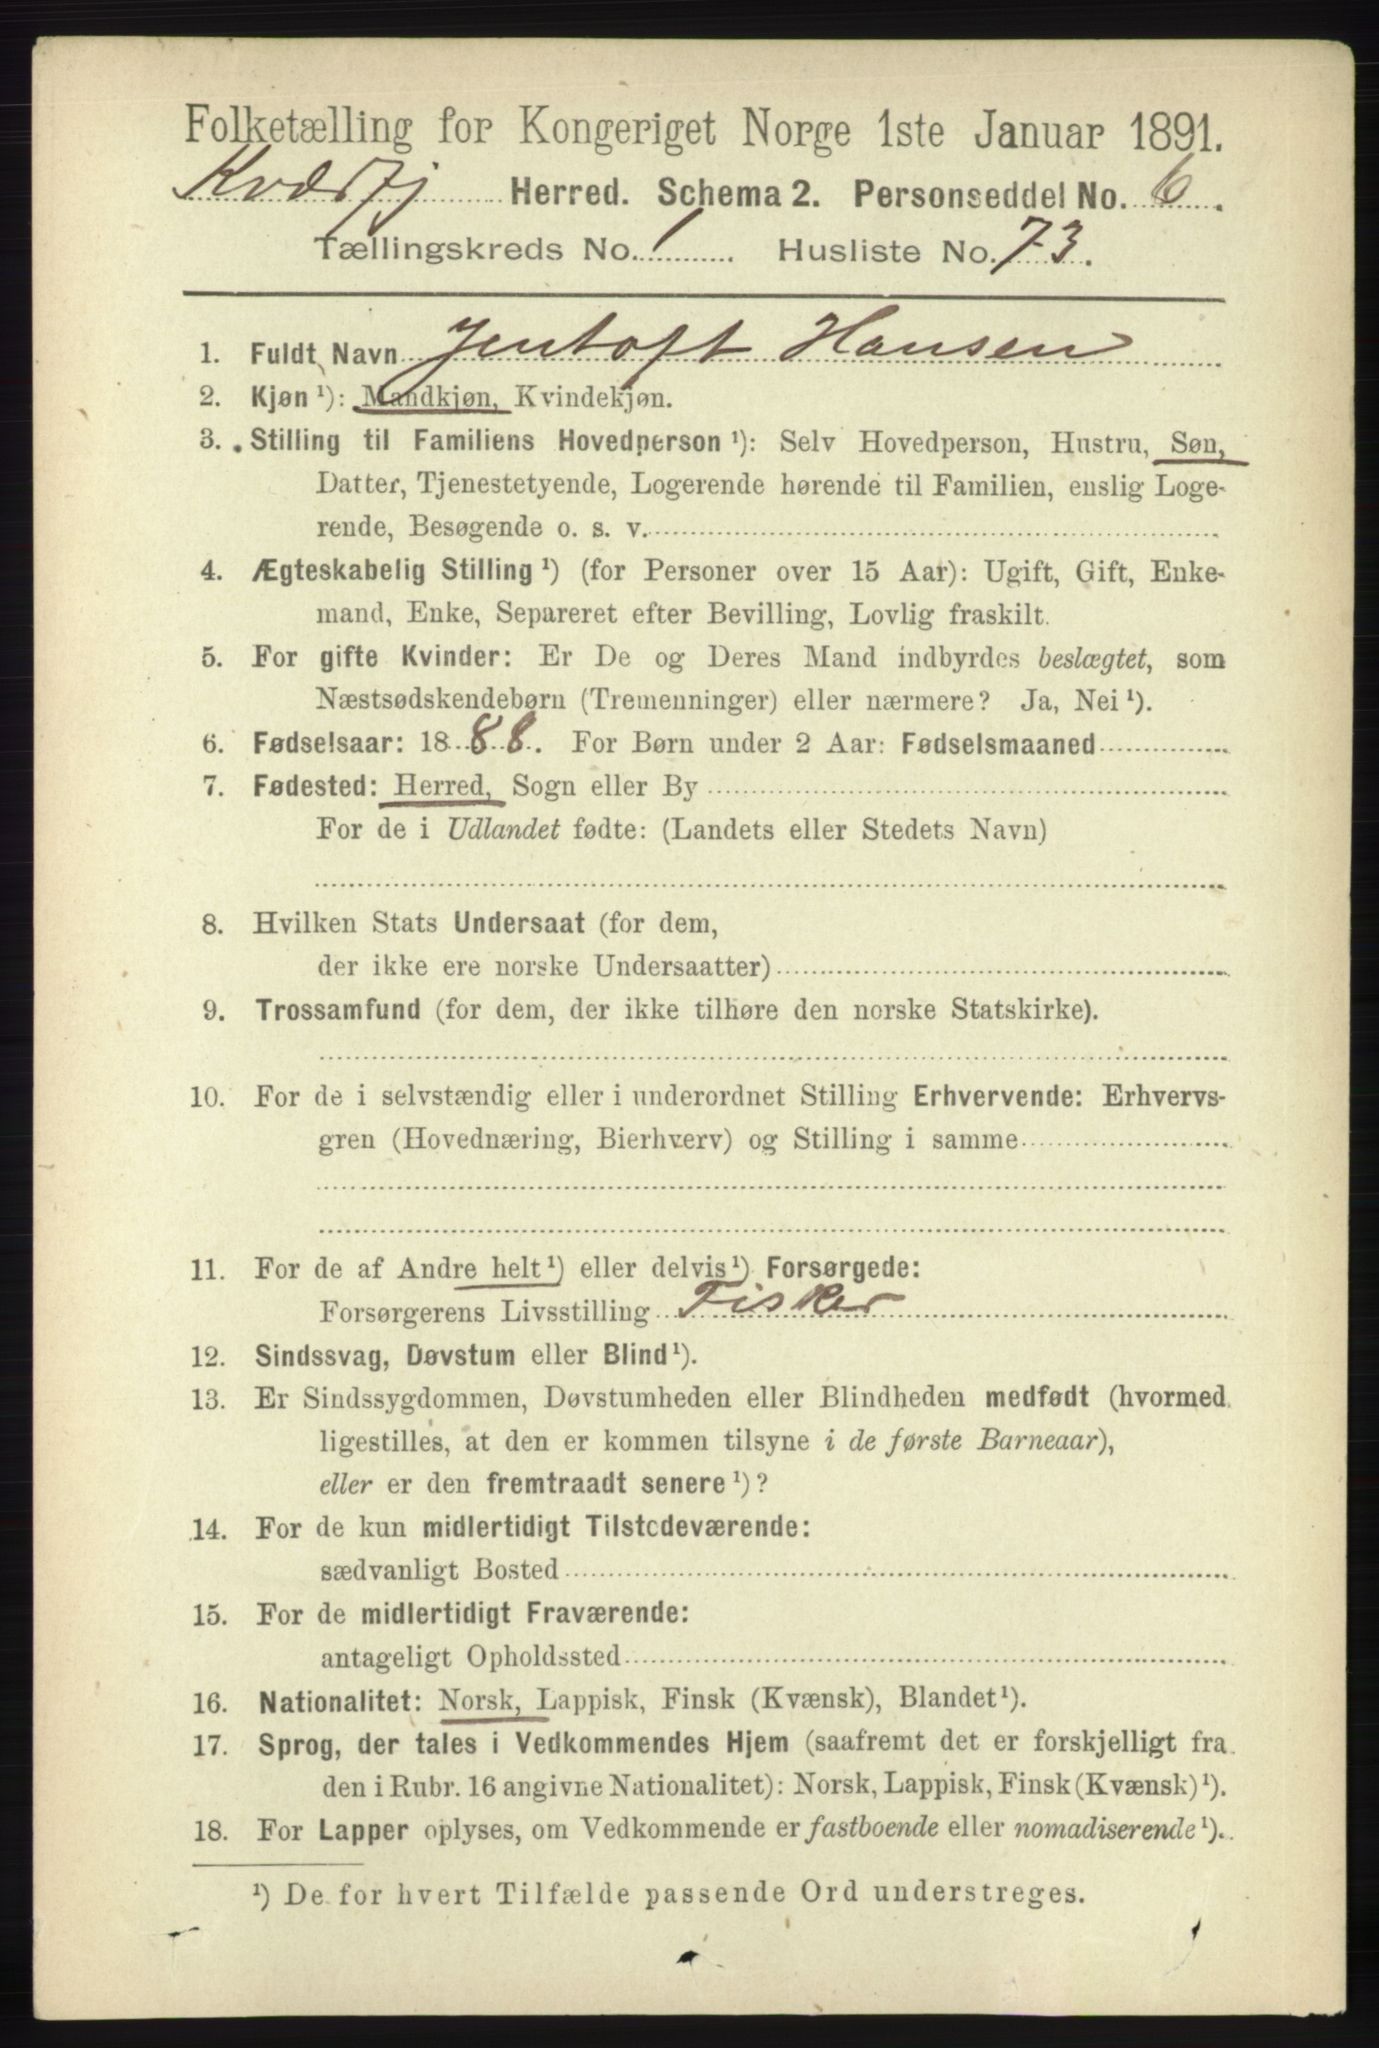 Folketælling for Kongeriget Norge 1ste Januar 1891.
Kvæfj Herred. Schema 2. Personseddel No. 6.
Tællingskreds No. 1 Husliste No. 73.
1. Fuldt Navn Jentoft Hansen
2. Kjøn ¹): Mandkjøn, Kvindekjøn.
3. Stilling til Familiens Hovedperson ¹): Selv Hovedperson, Hustru, Søn,
Datter, Tjenestetyende, Logerende hørende til Familien, enslig Loge-
rende, Besøgende o. s. v.
4. Ægteskabelig Stilling ¹) (for Personer over 15 Aar): Ugift, Gift, Enke-
mand, Enke, Separeret efter Bevilling, Lovlig fraskilt.
5. For gifte Kvinder: Er De og Deres Mand indbyrdes beslægtet, som
Næstsødskendebørn (Tremenninger) eller nærmere? Ja, Nei ¹).
6. Fødselsaar: 1888. For Børn under 2 Aar: Fødselsmaaned
7. Fødested: Herred, Sogn eller By
For de i Udlandet fødte: (Landets eller Stedets Navn)
8. Hvilken Stats Undersaat (for dem,
der ikke ere norske Undersaatter)
9. Trossamfund (for dem, der ikke tilhøre den norske Statskirke).
10. For de i selvstændig eller i underordnet Stilling Erhvervende: Erhvervs-
gren (Hovednæring, Bierhverv) og Stilling i samme
11. For de af Andre helt ¹) eller delvis ¹) Forsørgede:
Forsørgerens Livsstilling Fisker
12. Sindssvag, Døvstum eller Blind ¹).
13. Er Sindssygdommen, Døvstumheden eller Blindheden medfødt (hvormed
ligestilles, at den er kommen tilsyne i de første Barneaar),
eller er den fremtraadt senere ¹)?
14. For de kun midlertidigt Tilstedeværende:
sædvanligt Bosted
15. For de midlertidigt Fraværende:
antageligt Opholdssted
16. Nationalitet: Norsk, Lappisk, Finsk (Kvænsk), Blandet ¹).
17. Sprog, der tales i Vedkommendes Hjem (saafremt det er forskjelligt fra
den i Rubr. 16 angivne Nationalitet): Norsk, Lappisk, Finsk (Kvænsk) ¹).
18. For Lapper oplyses, om Vedkommende er fastboende eller nomadiserende ¹).
¹) De for hvert Tilfælde passende Ord understreges.